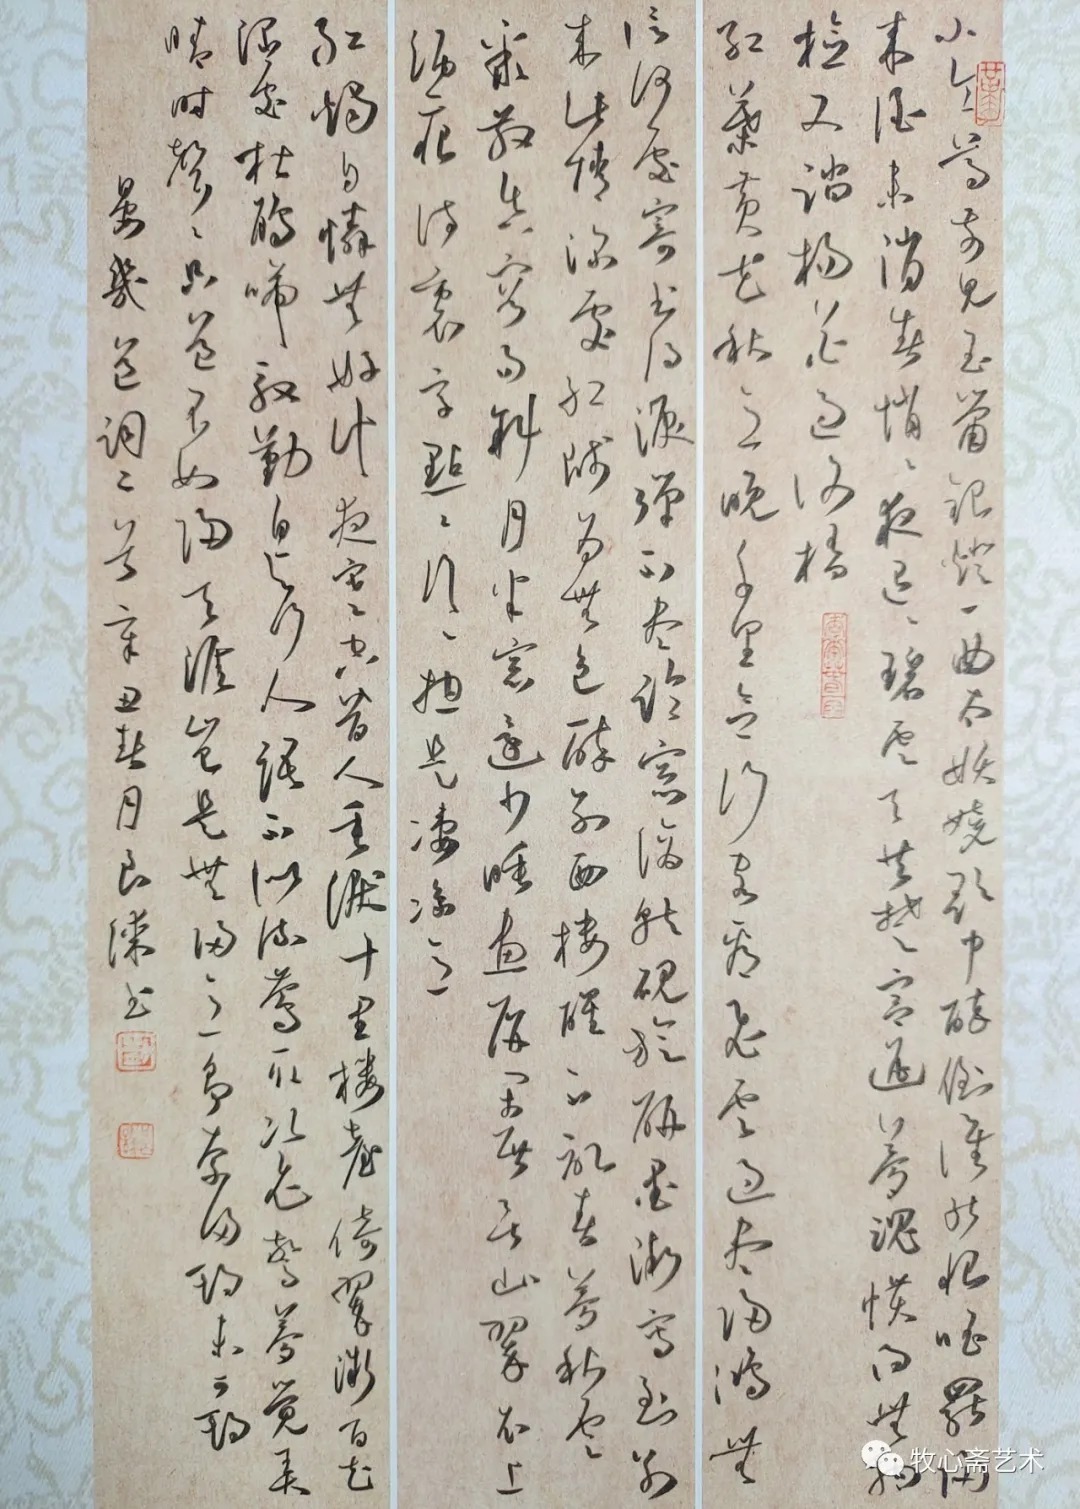 小令尊前見玉簫銀燈一曲太妖嬈歌中醉倒誰能恨唱罷歸
來酒未消春悄〻夜迢〻碧雲天共楚宮遙夢魂慣得無拘
檢又踏楊花過謝橋
紅葉黃花秋意晚千里念行客看飛雲過盡歸鴻無
信何處寄書得淚彈不盡臨窗滴就硯旋研墨漸寫到別
來此情深處紅牋為無色醉別西樓醒不記春夢秋雲
聚散真容易斜月半窗還少睡畫屏閑展吳山翠衣上
酒痕詩裏字點〻行〻總是淒涼意
紅燭自憐無好計夜寒空替人垂淚十里樓臺倚翠微百花
深處杜鵑啼殷勤自與行人語不似流鶯取次飛驚夢覺弄
晴時聲〻只道不如歸天涯豈是無歸意爭奈歸期未可期
晏幾道詞辛丑春月良書
牧心斋艺术